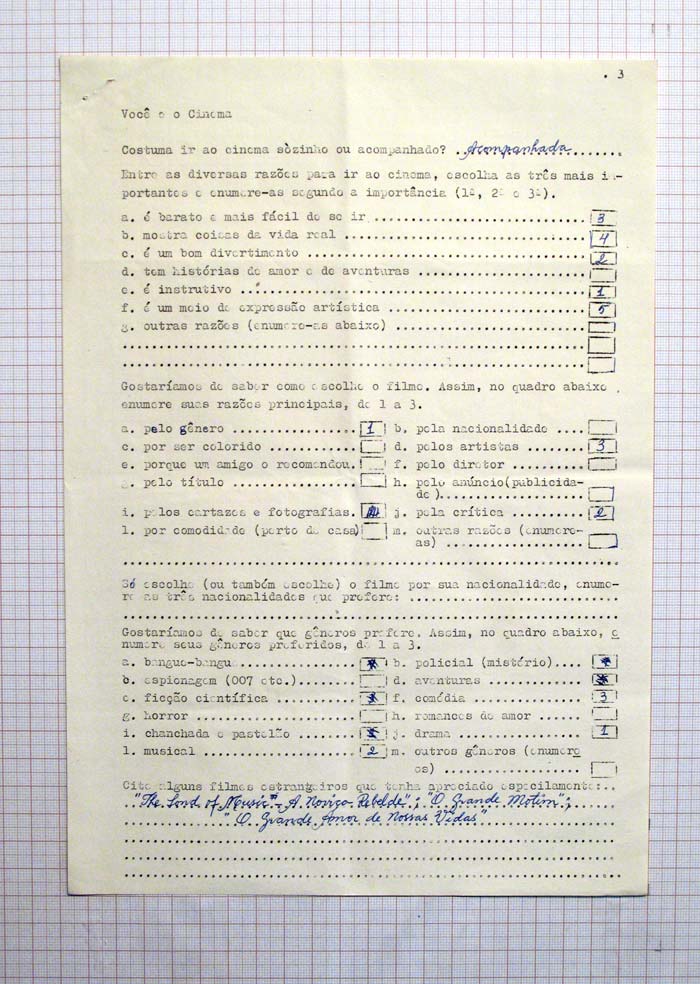 . 3
Você e o Cinema
Costuma ir ao cinema sòzinho ou acompanhado? ..Acompanhada.......
Entre as diversas razões para ir ao cinema, escolha as três mais im-
portantes e enumere-as segundo a importância (1ª, 2ª e 3ª).
a. é barato e mais fácil de se ir .............................. 3
b. mostra coisas da vida real .............................. 4
c. é um bom divertimento .............................. 2
d. tem histórias de amor e de aventuras ..............................
e. é instrutivo .............................. 1
f. é um meio de expressão artística .............................. 5
g. outras razões (enumere-as abaixo) ..............................
Gostaríamos de saber como escolhe o filme. Assim, no quadro abaixo,
enumere suas razões principais, de 1 a 3.
a. pelo gênero .................. 1 b. pela nacionalidade ....
c. por ser colorido ............. d. pelos artistas ......... 3
e. porque um amigo o recomendou. f. pelo diretor ...........
g. pelo título .................. h. pelo anúncio(publicida-
de )......................
i. pelos cartazes e fotografias. j. pela crítica ........... 2
l. por comodidade (perto de casa) m. outras razões (enumere-
as) .....................
Só escolhe (ou também escolhe) o filme por sua nacionalidade, enume-
re as três nacionalidades que prefere: ..............................
Gostaríamos de saber que gêneros prefere. Assim, no quadro abaixo, e
numere seus gêneros preferidos, de 1 a 3.
a. bangue-bangue................. b. policial (mistério)....
c. espionagem (007 etc.)........ d. aventuras ..............
e. ficção científica ............ f. comédia ................ 3
g. horror ....................... h. romances de amor ......
i. chanchada e pastelão ......... j. drama .................. 1
l. musical ...................... 2 m. outros gêneros (enumere
os) .....................
Cite alguns filmes estrangeiros que tenha apreciado especilamente:..
"The Sond of Music" - A Noviça Rebelde"; "O Grande Motim";
"O Grande Amor de Nossas Vidas"